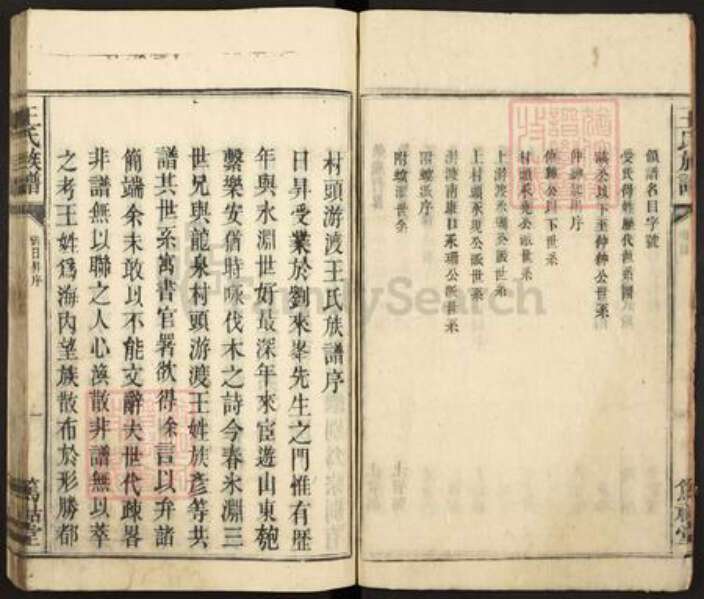 王氏族譜
領譜名目字號
受氏得姓歷代世系圖
公以下至仲仲公世系
仲
公以下世系
村頭永現公派世系
上游渡永珊公派世系
上村頭永現公派世系
游渡南康口永珊公派世系
附螟派序
附螟派世系
村頭游渡王氏族譜序
日昇受業於劉來峯先生之門惟有歷
年與水淵世好最深年來宦遊山東匏
繫樂安猶時咏伐木之詩今春氷淵三
世兄與龍泉村頭游渡王姓族彥等共
譜其世系寓書官署欲得餘言以弁諸
簡端余未敢以不能文辭夫世代疎畧
非譜無以聯之人心渙散非譜無以萃
之考王姓爲海內望族散布於形勝都
王氏族譜
日昇序
一
篤祜堂